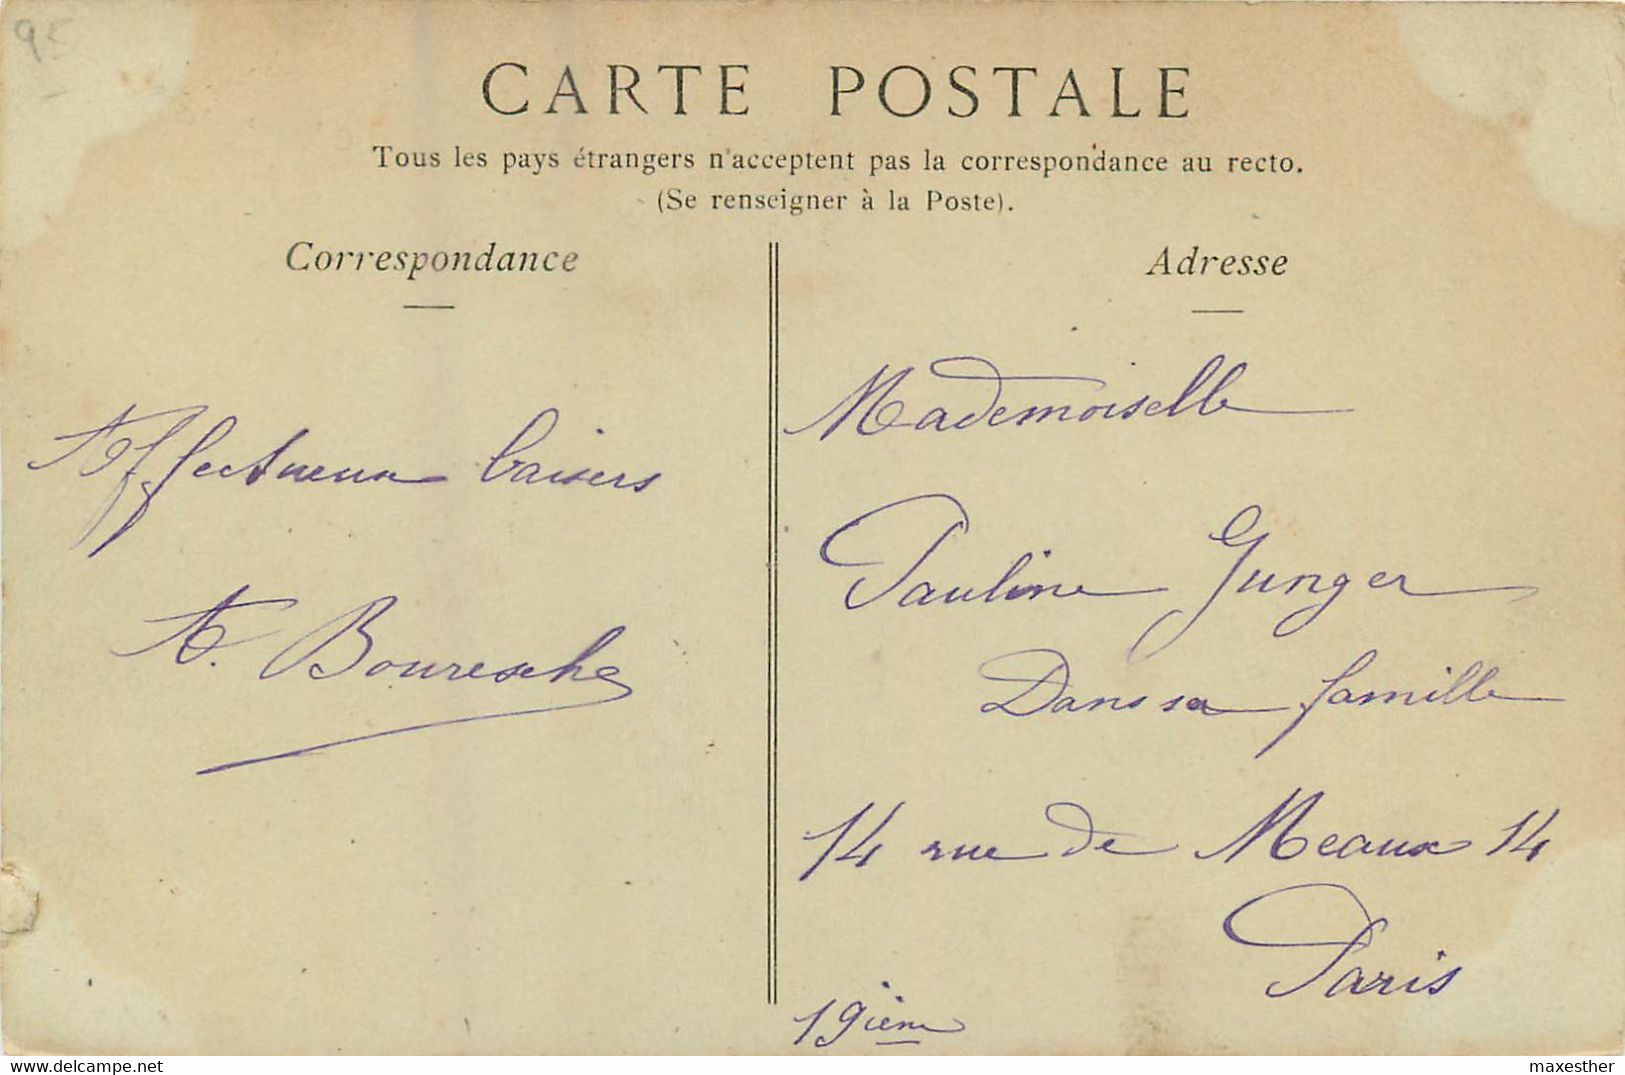 95
CARTE POSTALE
Tous les pays étrangers n'acceptent pas la correspondance au recto.
(Se renseigner à la Poste).
Correspondance
Affectueux baisers
A. Bouresche
Adresse
Mademoiselle
Pauline Gunger
Dans sa famille
14 rue de Meaux 14
Paris
19ième
maxesther